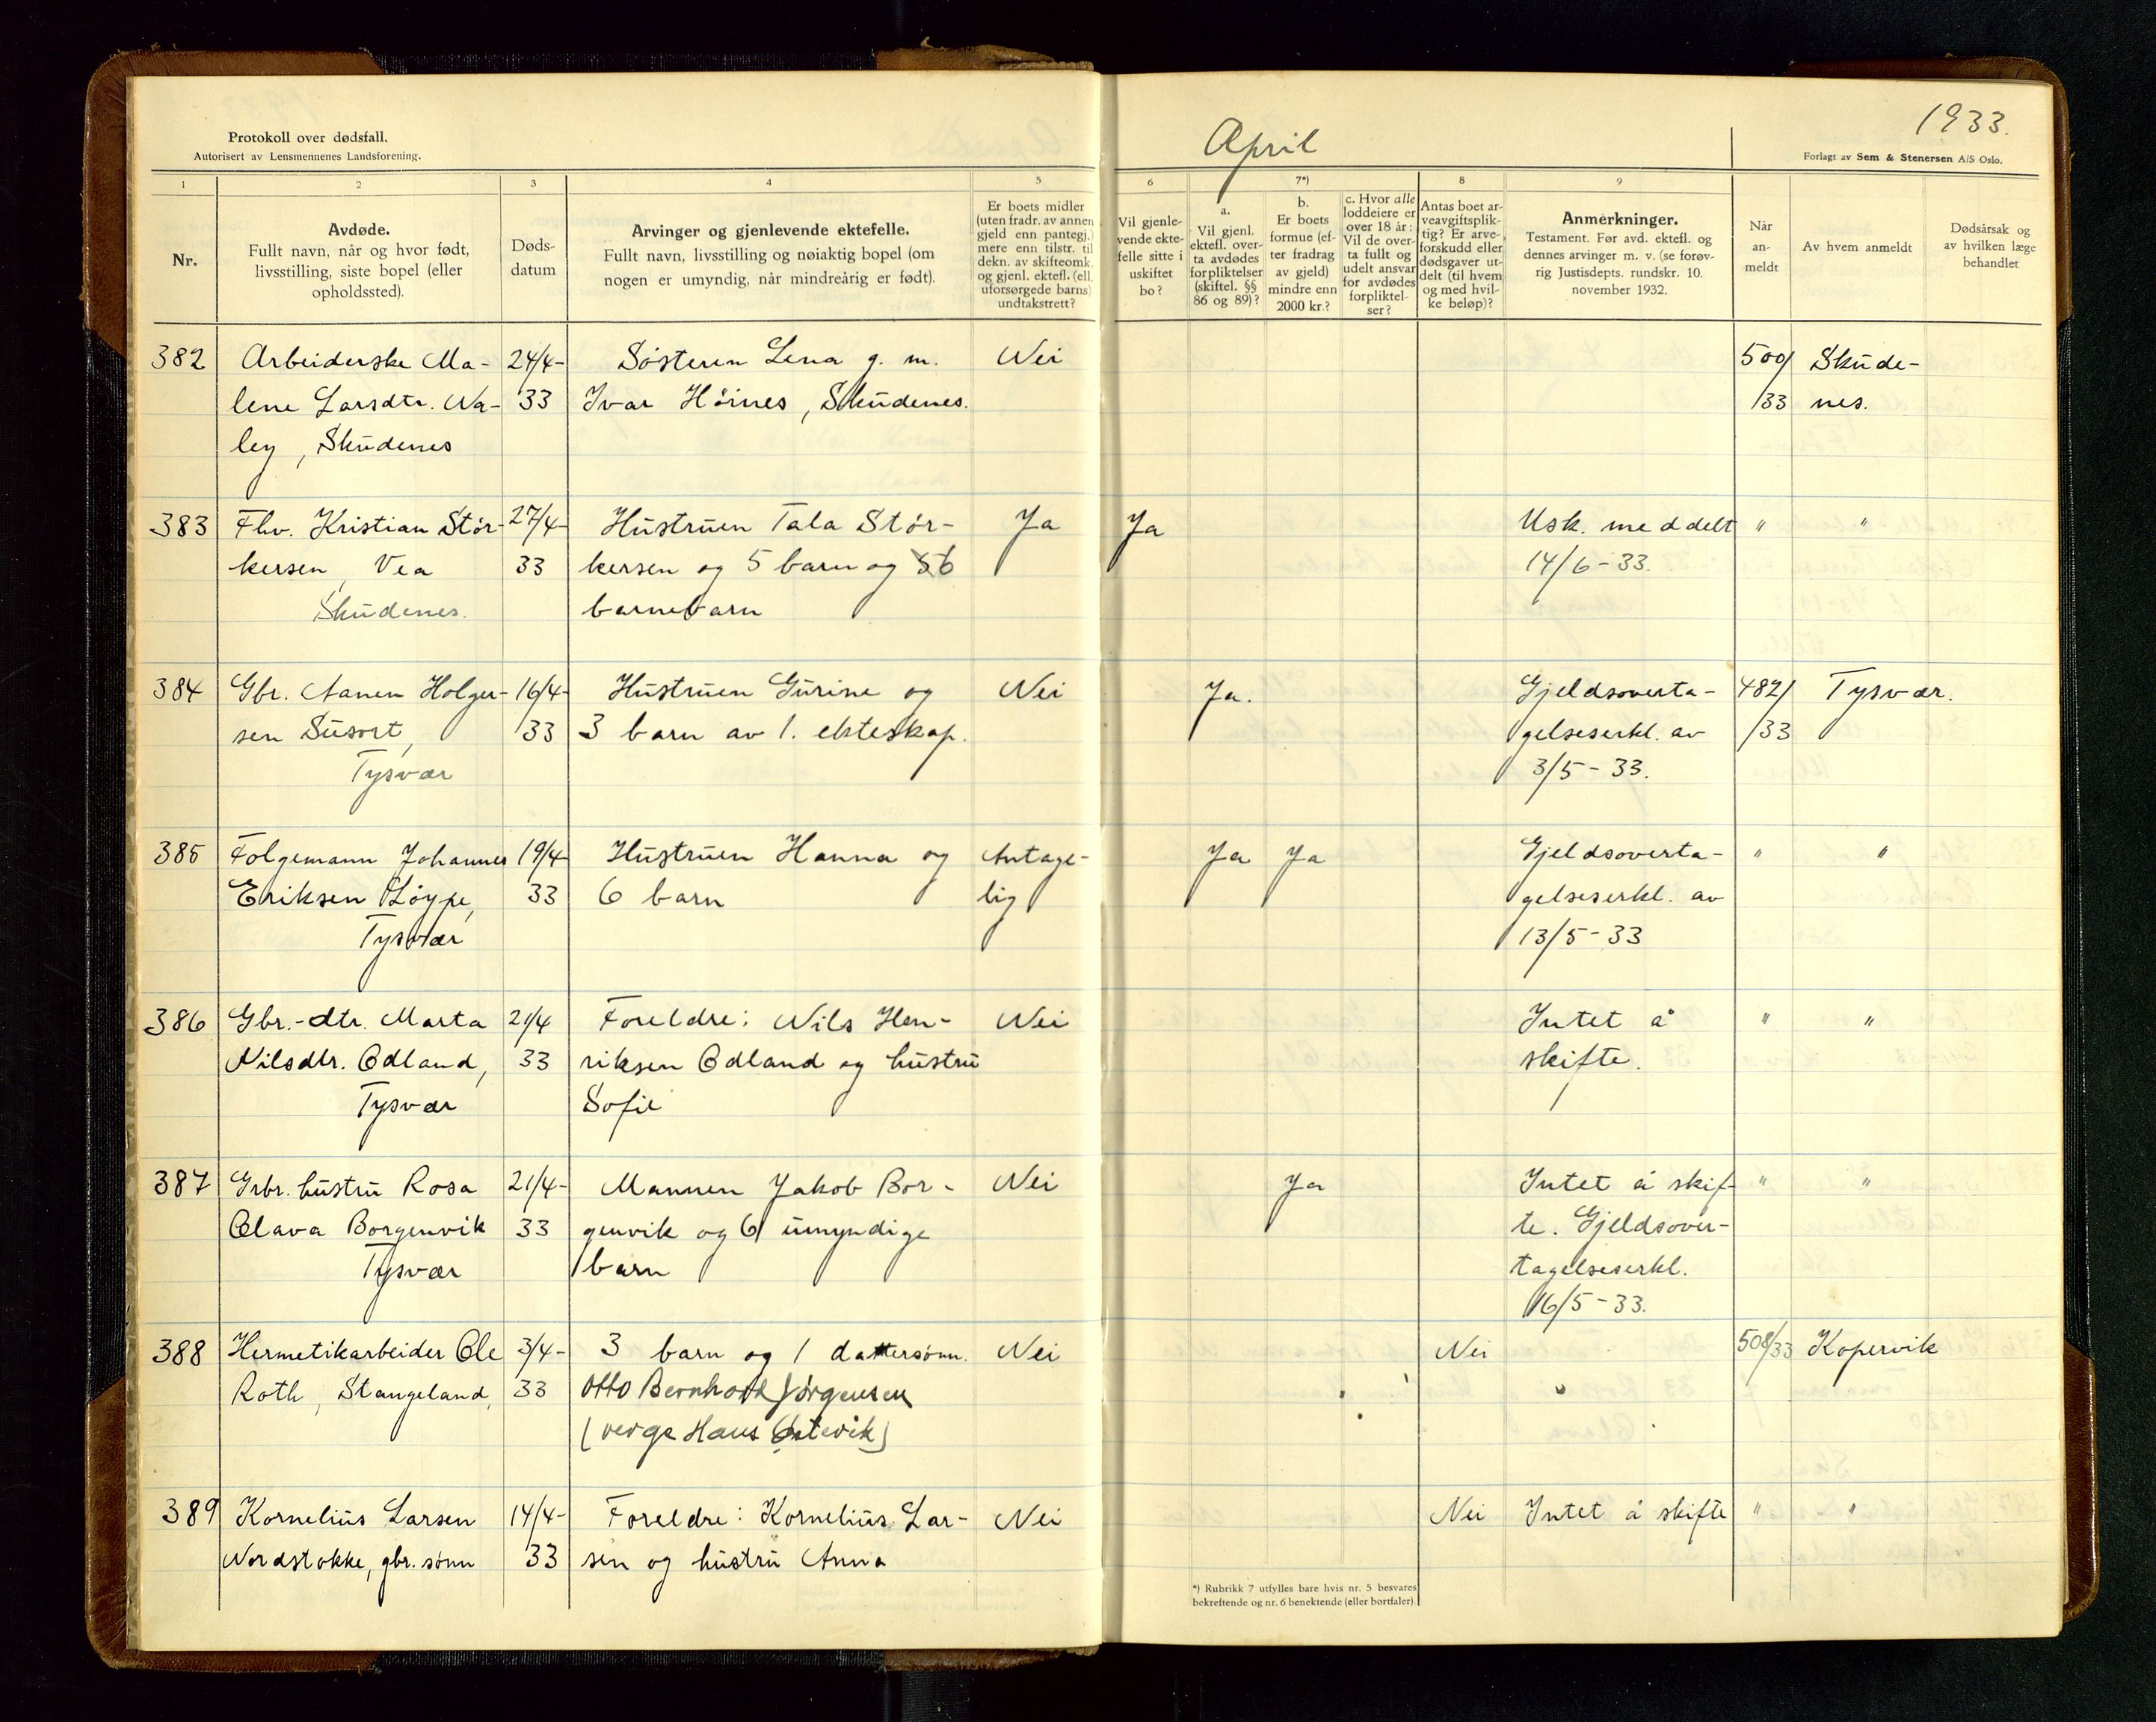 Protokoll over dødsfall.
Autorisert av Lensmennenes Landsforening.
April
1933.
Forlagt av Sem & Stenersen A/S Oslo.
1 2 3 4 5 6 7*) 8 9
Nr.
Avdøde.
Fullt navn, når og hvor født,
livsstilling, siste bopel (eller
opholdssted).
Døds-
datum
Arvinger og gjenlevende ektefelle.
Fullt navn, livsstilling og nøiaktig bopel (om
nogen er umyndig, når mindreårig er født).
Er boets midler
(uten fradr. av annen
gjeld enn pantegj.)
mere enn tilstr. til
dekn. av skifteomk.
og gjenl. ektefl. (ell.
uforsørgede barns)
undtakstrett?
Vil gjenle-
vende ekte-
felle sitte i
uskiftet
bo?
a.
Vil gjenl.
ektefl. over-
ta avdødes
forpliktelser
(skiftel. §§
86 og 89)?
b.
Er boets
formue (ef-
ter fradrag
av gjeld)
mindre enn
2000 kr.?
c. Hvor alle
loddeiere er
over 18 år:
Vil de over-
ta fullt og
udelt ansvar
for avdødes
forpliktel-
ser?
Antas boet ar-
veavgiftsplik-
tig? Er arve-
forskudd eller
dødsgaver ut-
delt (til hvem
og med hvil-
ke beløp)?
Anmerkninger.
Testament. Før avd. ektefl. og
dennes arvinger m. v. (se forøv-
rig Justisdepts. rundskr. 10.
november 1932.
Når
an-
meldt
Av hvem anmeldt
Dødsårsak og
av hvilken læge
behandlet
382 Arbeiderske Ma- 24/4- Søsteren Lena g. m. Nei 500/ Skude-
lene Larsdtr. Va- 33 Ivar Høines, Skudenes. /33 nes.
ley, Skudenes
383 Fhv. Kristian Stør- 27/4- Hustruen Tala Stør- Ja Ja Usk. meddelt " "
kersen, Vea 33 kersen og 5 barn og 5 6 14/6-33.
Skudenes. barnebarn
384 Gbr. Aanen Holger- 16/4- Hustruen Gurine og Nei Ja. Gjeldsoverta- 482/ Tysvær.
sen Susort, 33 3 barn av 1. ekteskap. gelseserkl. av /33
Tysvær 3/5-33.
385 Følgemann Johannes 19/4- Hustruen Hanna og Antage- Ja Ja Gjeldsoverta- " "
Eriksen Løype, 33 6 barn lig gelseserkl. av
Tysvær 13/5-33
386 Gbr.-dtr. Marta 21/4 Foreldre: Nils Hen- Nei Intet å " "
Nilsdtr. Odland, 33 riksen Odland og hustru skifte.
Tysvær Sofie
387 Grbr. hustru Rosa 21/4- Mannen Jakob Bor- Nei Ja Intet å skif- " "
Olava Borgenvik 33 genvik og 6 umyndige te. Gjeldsover-
Tysvær barn tagelseserkl.
16/5-33.
388 Hermetikarbeider Ole 3/4- 3 barn og 1 dattersønn. Nei Nei 508/33 Kopervik
Roth, Stangeland, 33 Otto Bernhard Jørgensen
(verge Hans Østevik)
389 Kornelius Larsen 14/4- Foreldre: Kornelius Lar- Nei Nei Intet å skifte " "
Nordstokke, gbr. sønn 33 sen og hustru Anna
*) Rubrikk 7 utfylles bare hvis nr. 5 besvares
bekreftende og nr. 6 benektende (eller bortfaler)